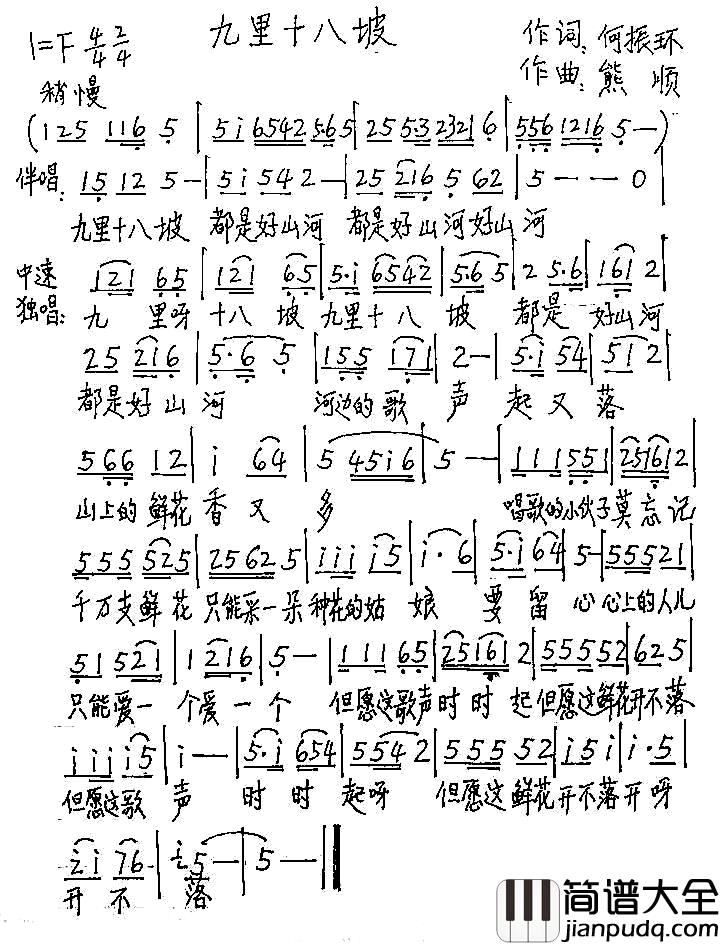 九里十八坡
1=F 4/4 2/4
作词:何振环
作曲:熊顺
稍慢
(125 116 5 | 5i 6542 5·65 | 25 5·3 2321 6 | 556 1216 5 — )
伴唱: 15 12 5 — | 5i 54 2 — | 25 216 5 62 | 5 — — 0 |
九里十八坡 都是好山河 都是好山河好山河
中速
独唱: 121 65 | 121 65 | 5·i 6542 | 5·6 5 | 2 5·6 | 161 2 |
九 里呀 十八 坡 九里十 八 坡 都是 好山河
25 216 | 5·6 5 | 155 171 | 2 — | 5·i 54 | 51 2 |
都是好 山 河 河边的歌 声 起 又 落
566 12 | i 64 | 5 45i6 | 5 — | 111 551 | 25161 2 |
山上的鲜花 香 又 多 唱歌的小伙子莫忘记
555 525 | 2562 5 | iii i5 | i·6 | 5·i 64 | 5 — | 555 21 |
千万支鲜 花 只能采一朵 种花的姑 娘 要 留 心 心上的人儿
51 521 | 1 216 | 5 — | 111 65 | 25161 2 | 555 52 | 62 5 |
只能爱一 个爱一个 但愿这歌声时时 起但愿这鲜花开不落
iii i5 | i — — | 5·i 654 | 554 2 | 555 52 | i5 i | i·5 |
但愿这歌 声 时 时 起呀 但愿这鲜花开不落开呀
ii 76 | i5 — | 5 — ‖
开 不 落
简谱大全
jianpudq.com